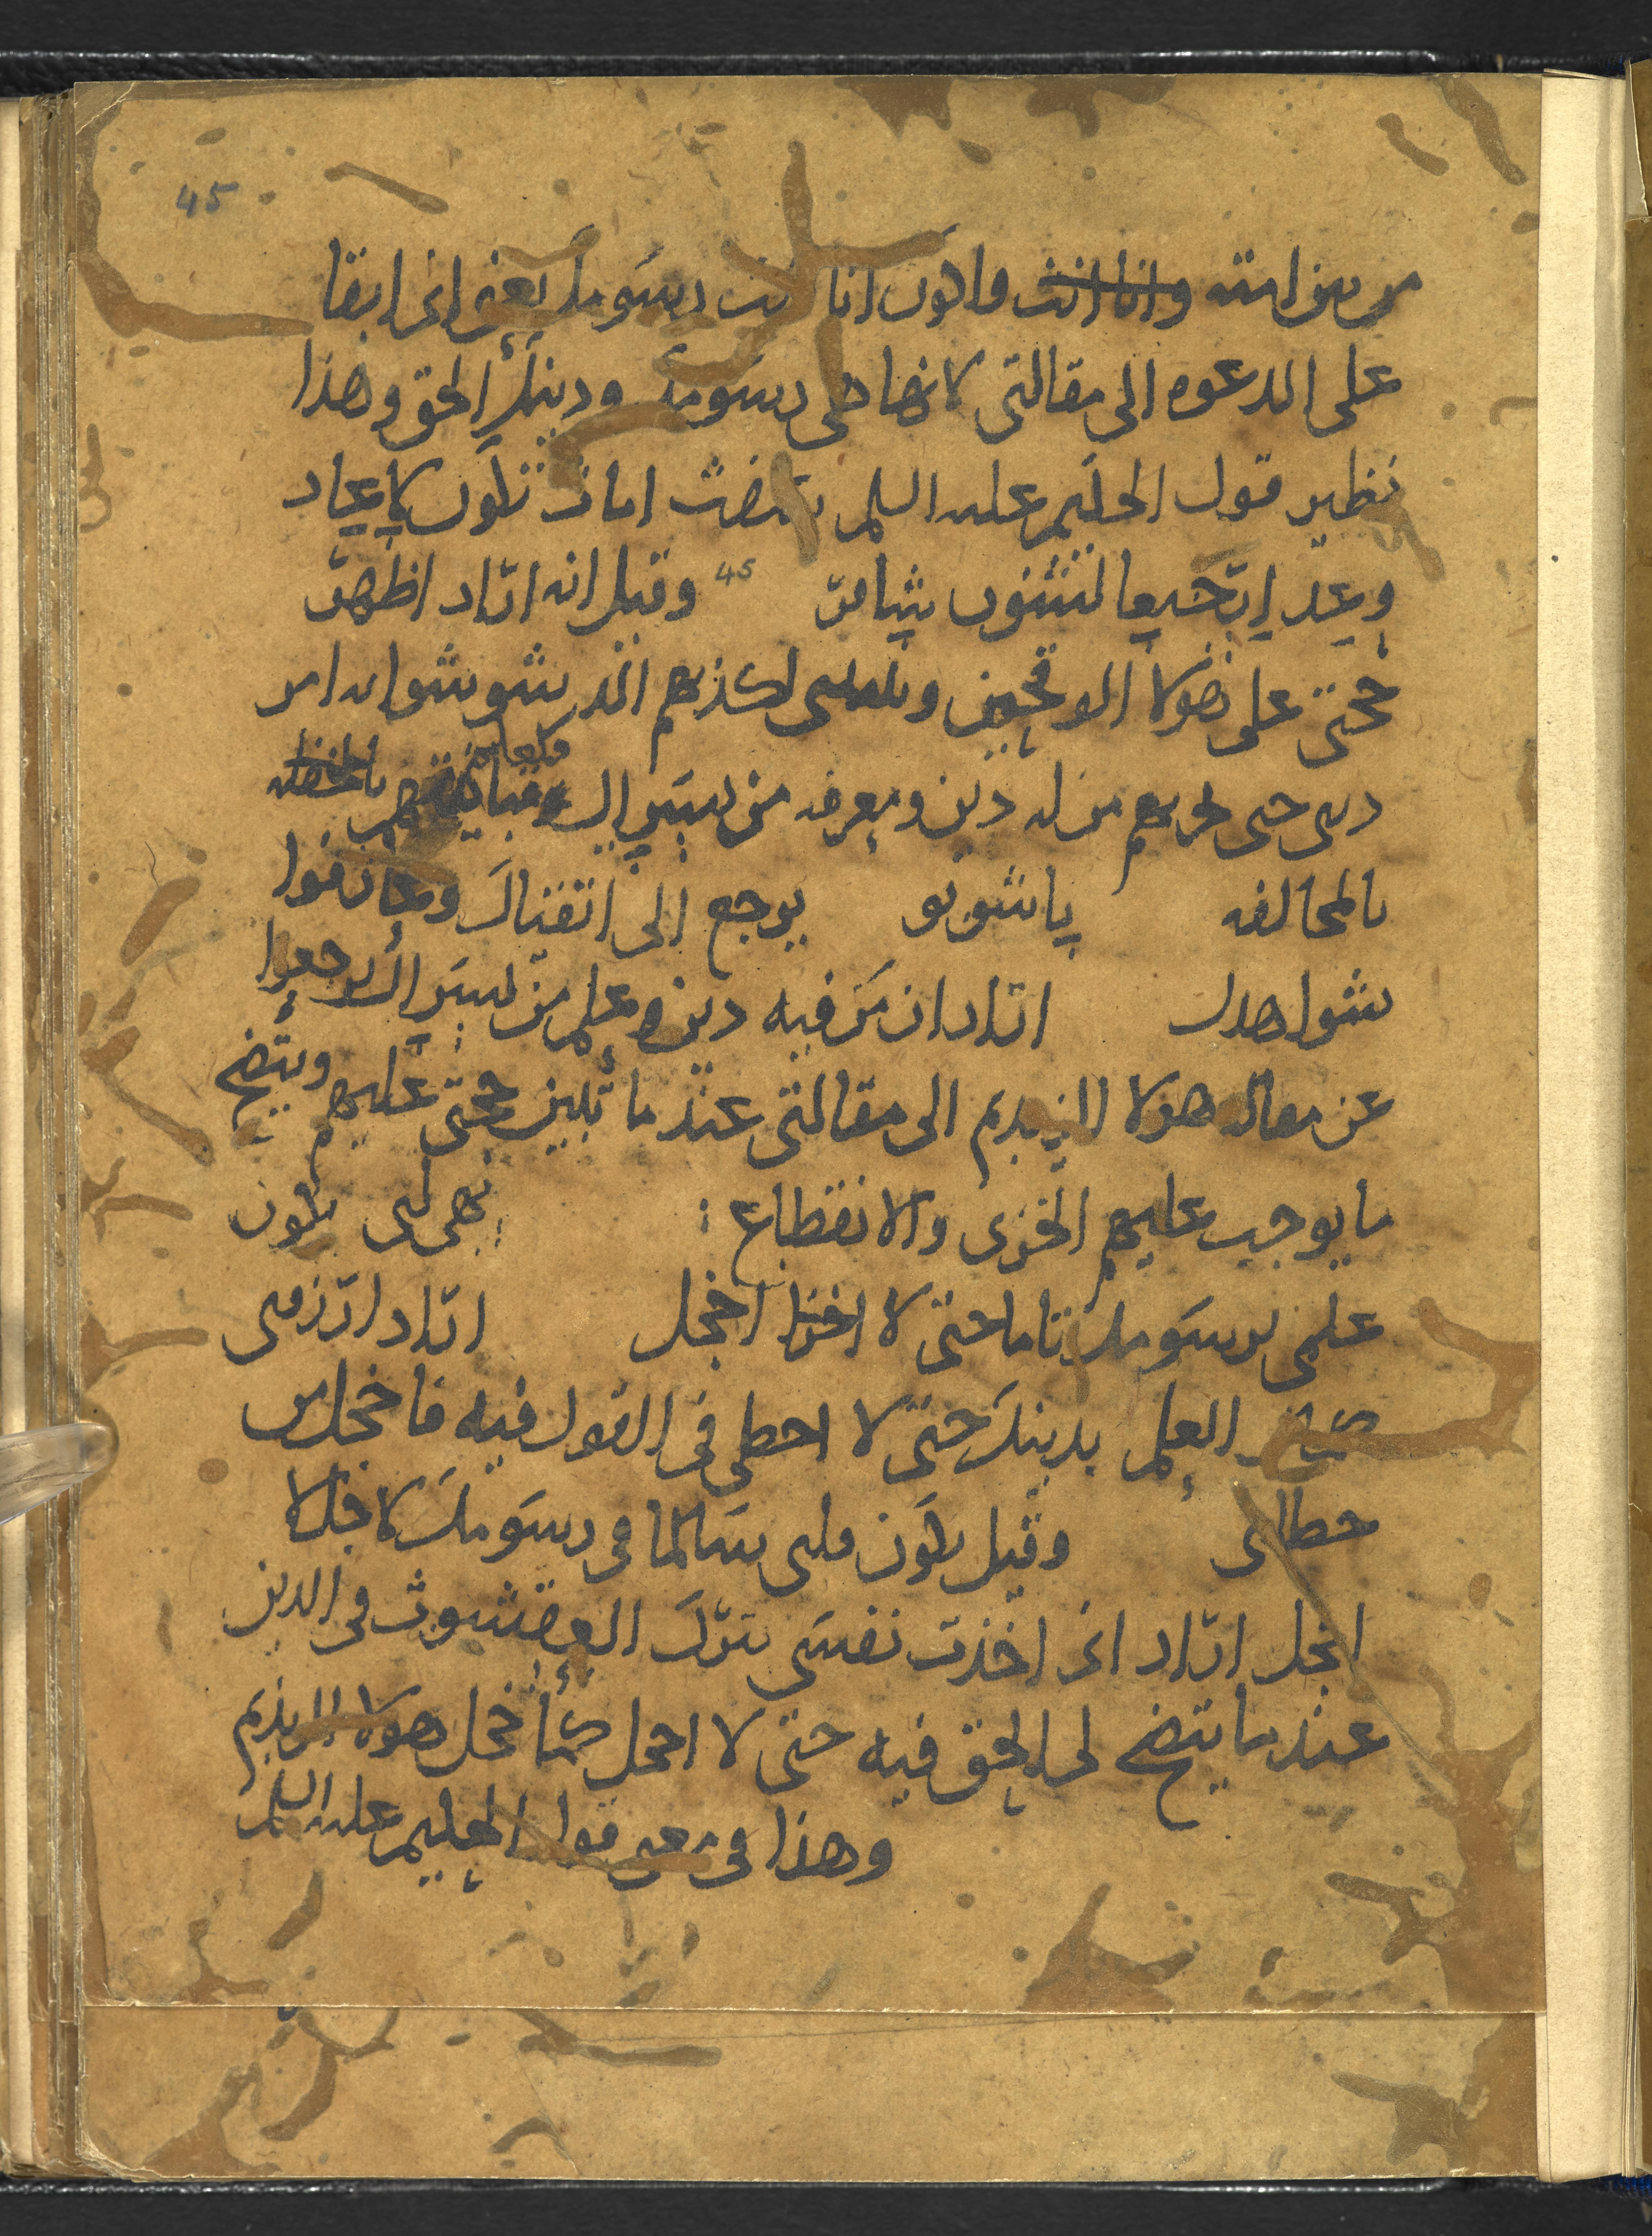 45
من بين امته وانا انت واهون انا انت رسومك يعني اني ابقا
على الدعوه الى مقالتي لانها هي رسومك ودينك الحق وهذا
نظير قول الحكيم عليه السلم اماث تكون لاعاد
وعد ارجيعا لشون شاقر 45 وقيل انه اراد اظهر
حجتي على هولا الوقحين لكذبهم الذي شوشوا به امر
ديني حتى من له دين ومعرفه من يسرال
بالمخالفه ياشوبو يرجع الى اتقياك وعارفوا
شواهدك اراد ان من فيه دين وعلم من يسرال رجعوا
عن مقاله هولا الزيديم الى مقالتي عند ما تبين حجتي عليهم ويتضح
ما يوجب عليهم الخزى والانقطاع : يهي لبي يكون
علمي برسومك تاما حتى لا اخزا اخجل اراد ارزقني
العلم بدينك حتى لا اخطي في القول فيه فاخجل من
خطاى وقيل يكون قلبي سالما في رسومك لاجل لا
اخجل اراد اني اخذت نفسي بترك العقشوث في الدين
عند ما يتضح لي الحق فيه حتى لا اخجل كما خجل هولا الزيديم
وهذا في معنى قول الحكيم عليه السلم